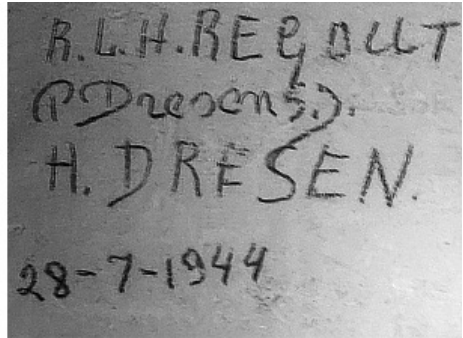 R.L.H.REGOUT
(P Dresens.).
H. DRESEN.
28-7-1944